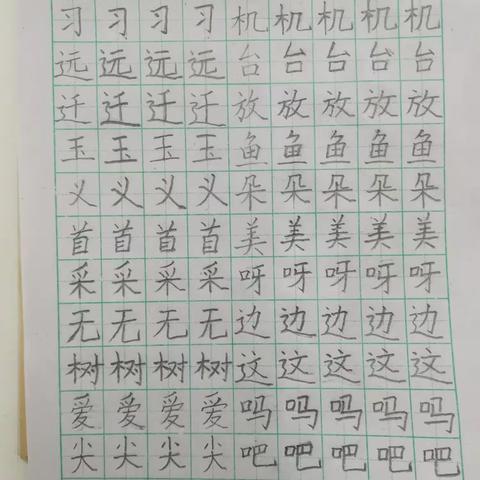 习习习习机机机机机
远远远远台台台台台
迁迁迁迁放放放放放
玉玉玉玉鱼鱼鱼鱼鱼
义义义义朵朵朵朵朵
首首首首美美美美美
采采采采呀呀呀呀呀
无无无无边边边边边
树树树树这这这这这
爱爱爱爱吗吗吗吗吗
尖尖尖尖吧吧吧吧吧